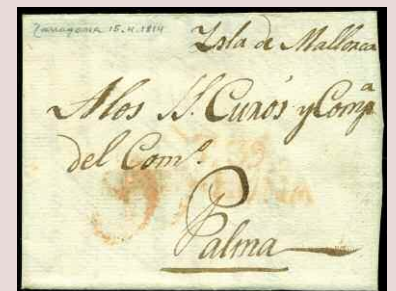 Zaragoza 15.4.1814
Isla de Mallorca
A los SS. Curós y Compª
del Comº.
Palma